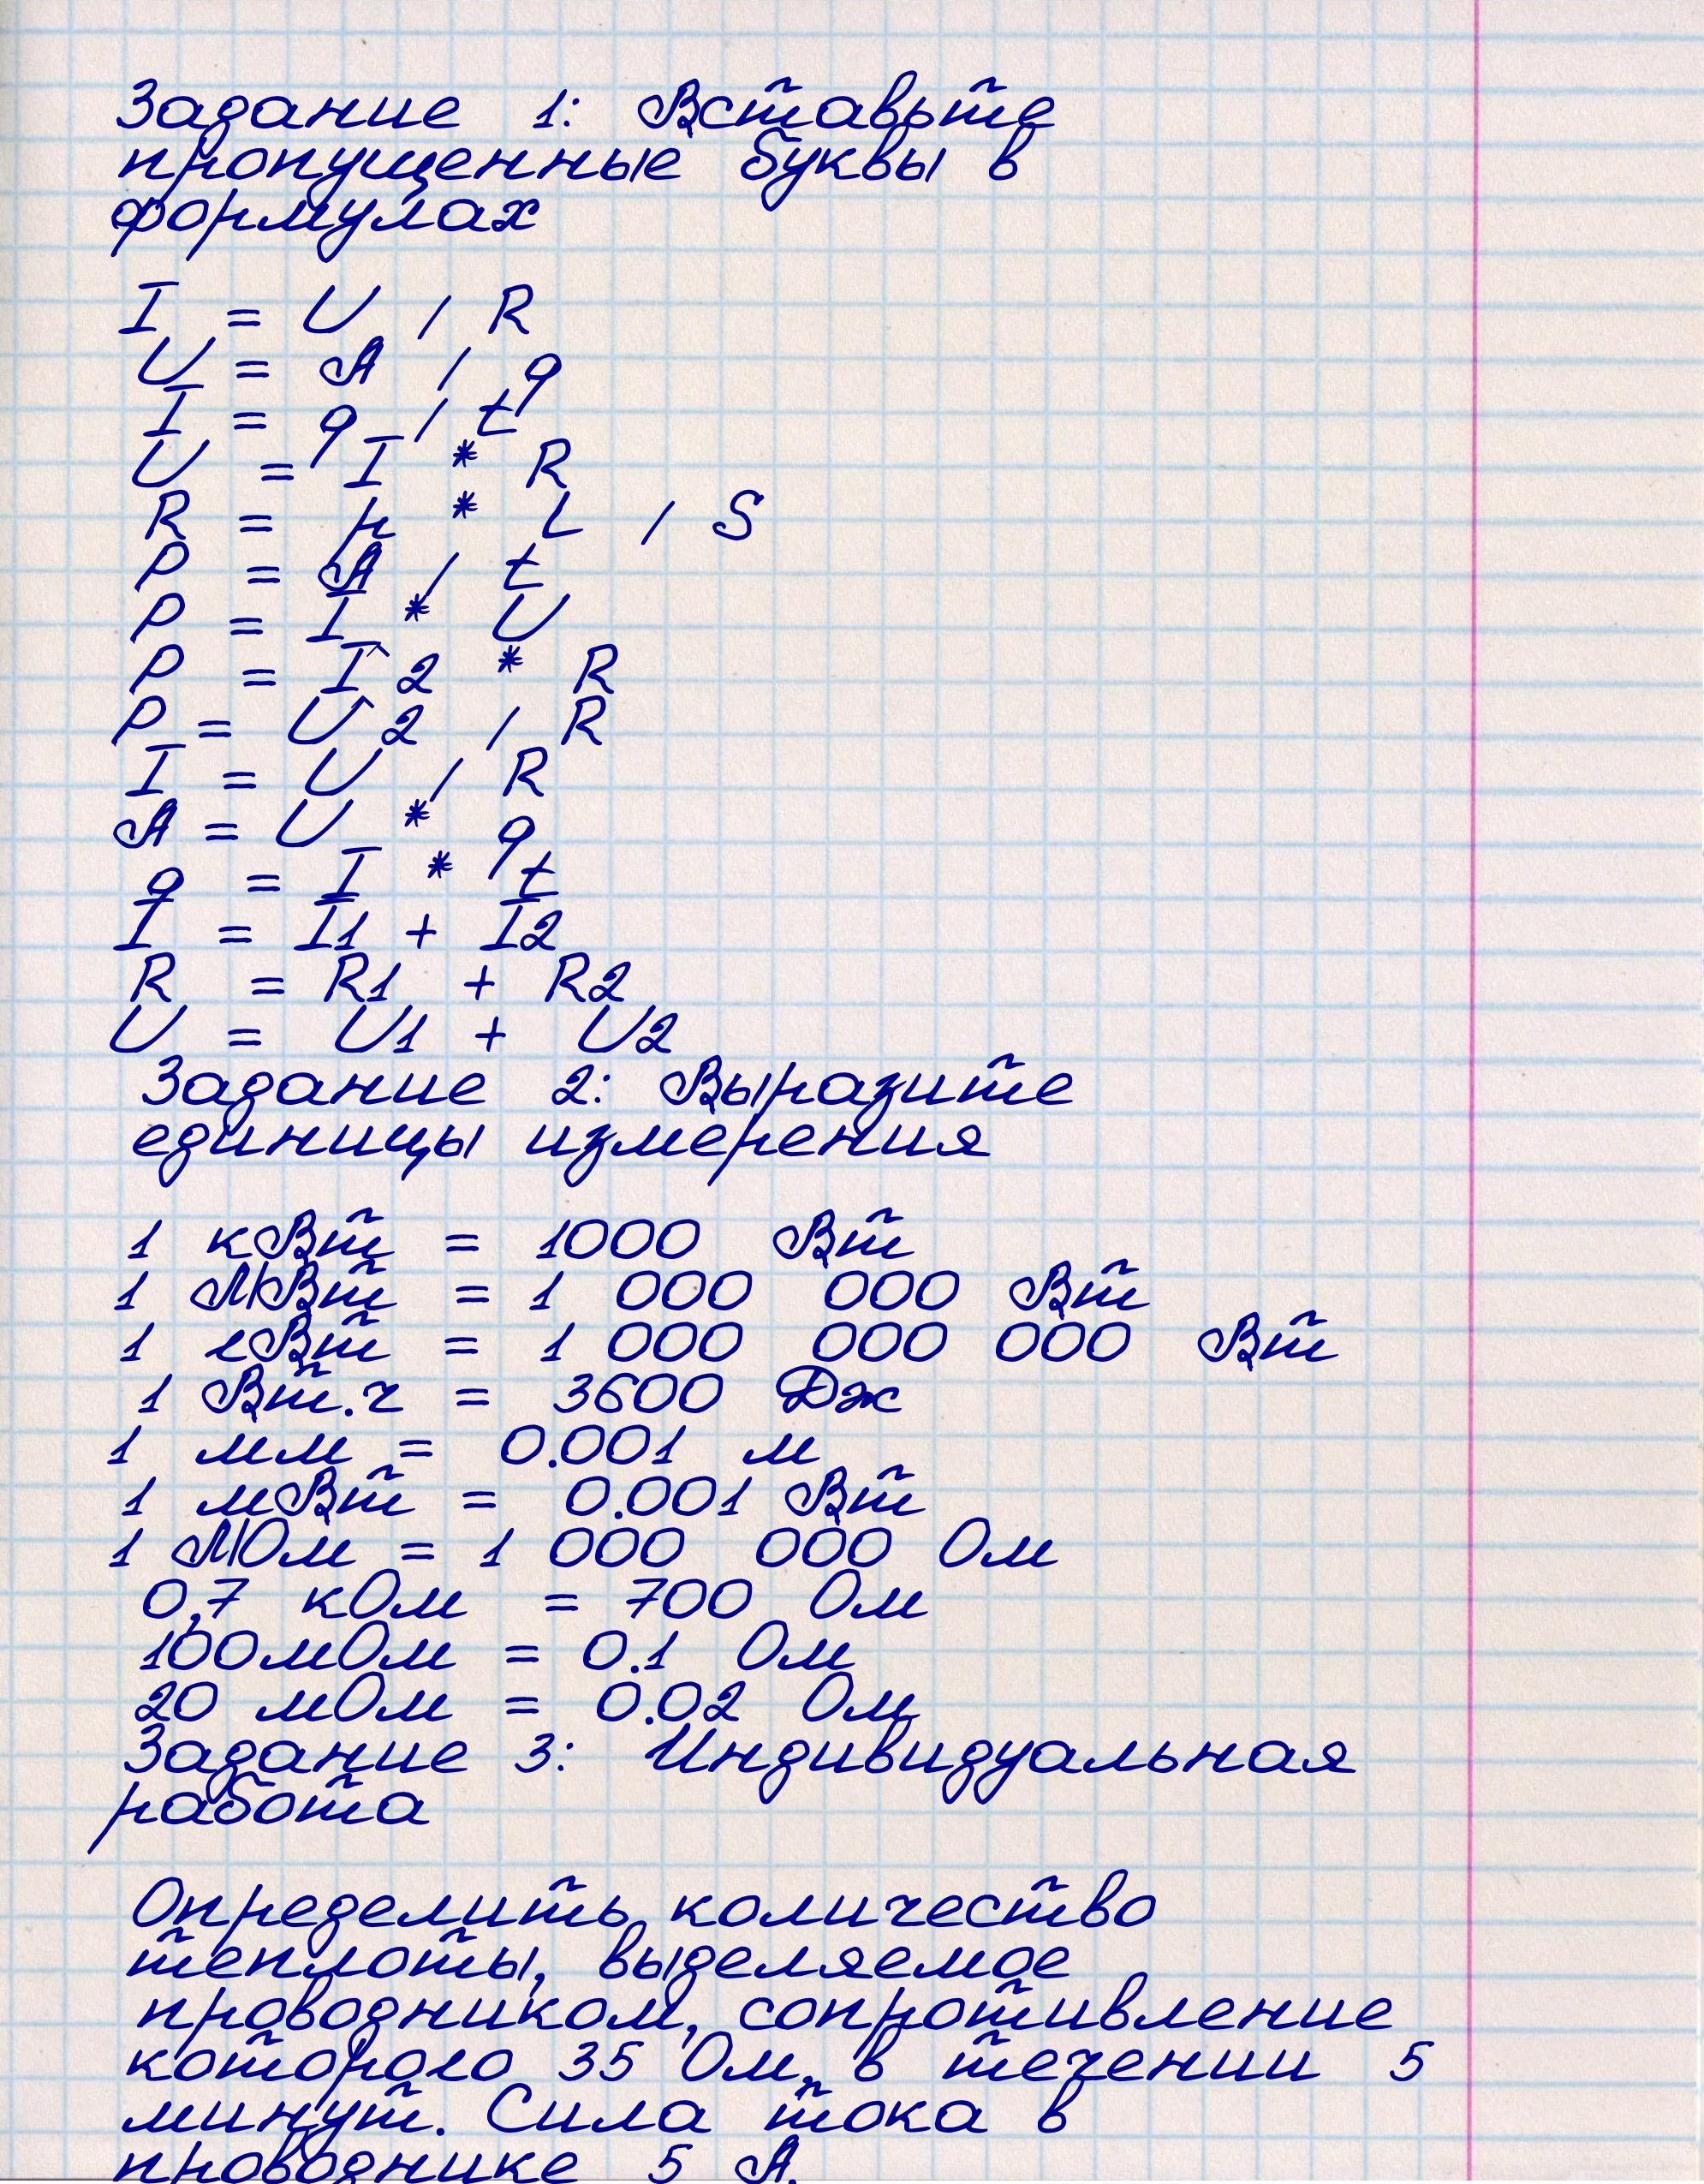 Задание 1: Вставьте
пропущенные буквы в
формулах
I = U / R
U = A / q
I = q / t
U = I * R
R = p * L / S
P = A / t
P = I * U
P = I^2 * R
P = U^2 / R
I = U / R
A = U * q
q = I * t
I = I1 + I2
R = R1 + R2
U = U1 + U2
Задание 2: Выразите
единицы измерения
1 кВт = 1000 Вт
1 МВт = 1 000 000 Вт
1 гВт = 1 000 000 000 Вт
1 Вт.ч = 3600 Дж
1 мм = 0.001 м
1 мВт = 0.001 Вт
1 МОм = 1 000 000 Ом
0,7 кОм = 700 Ом
100мОм = 0.1 Ом
20 мОм = 0.02 Ом
Задание 3: Индивидуальная
работа
Определить количество
теплоты, выделяемое
проводником, сопротивление
которого 35 Ом, в течении 5
минут. Сила тока в
проводнике 5 А.